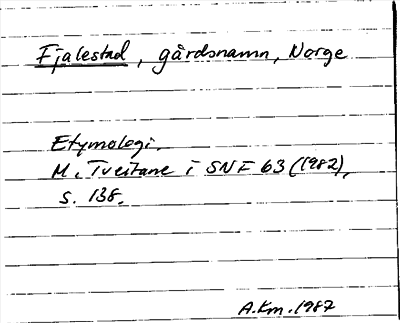 Fjalestad, gårdsnamn, Norge
Etymologi.
M. Tveitane i SNF 63 (1982),
s. 138.
A.Km. 1987